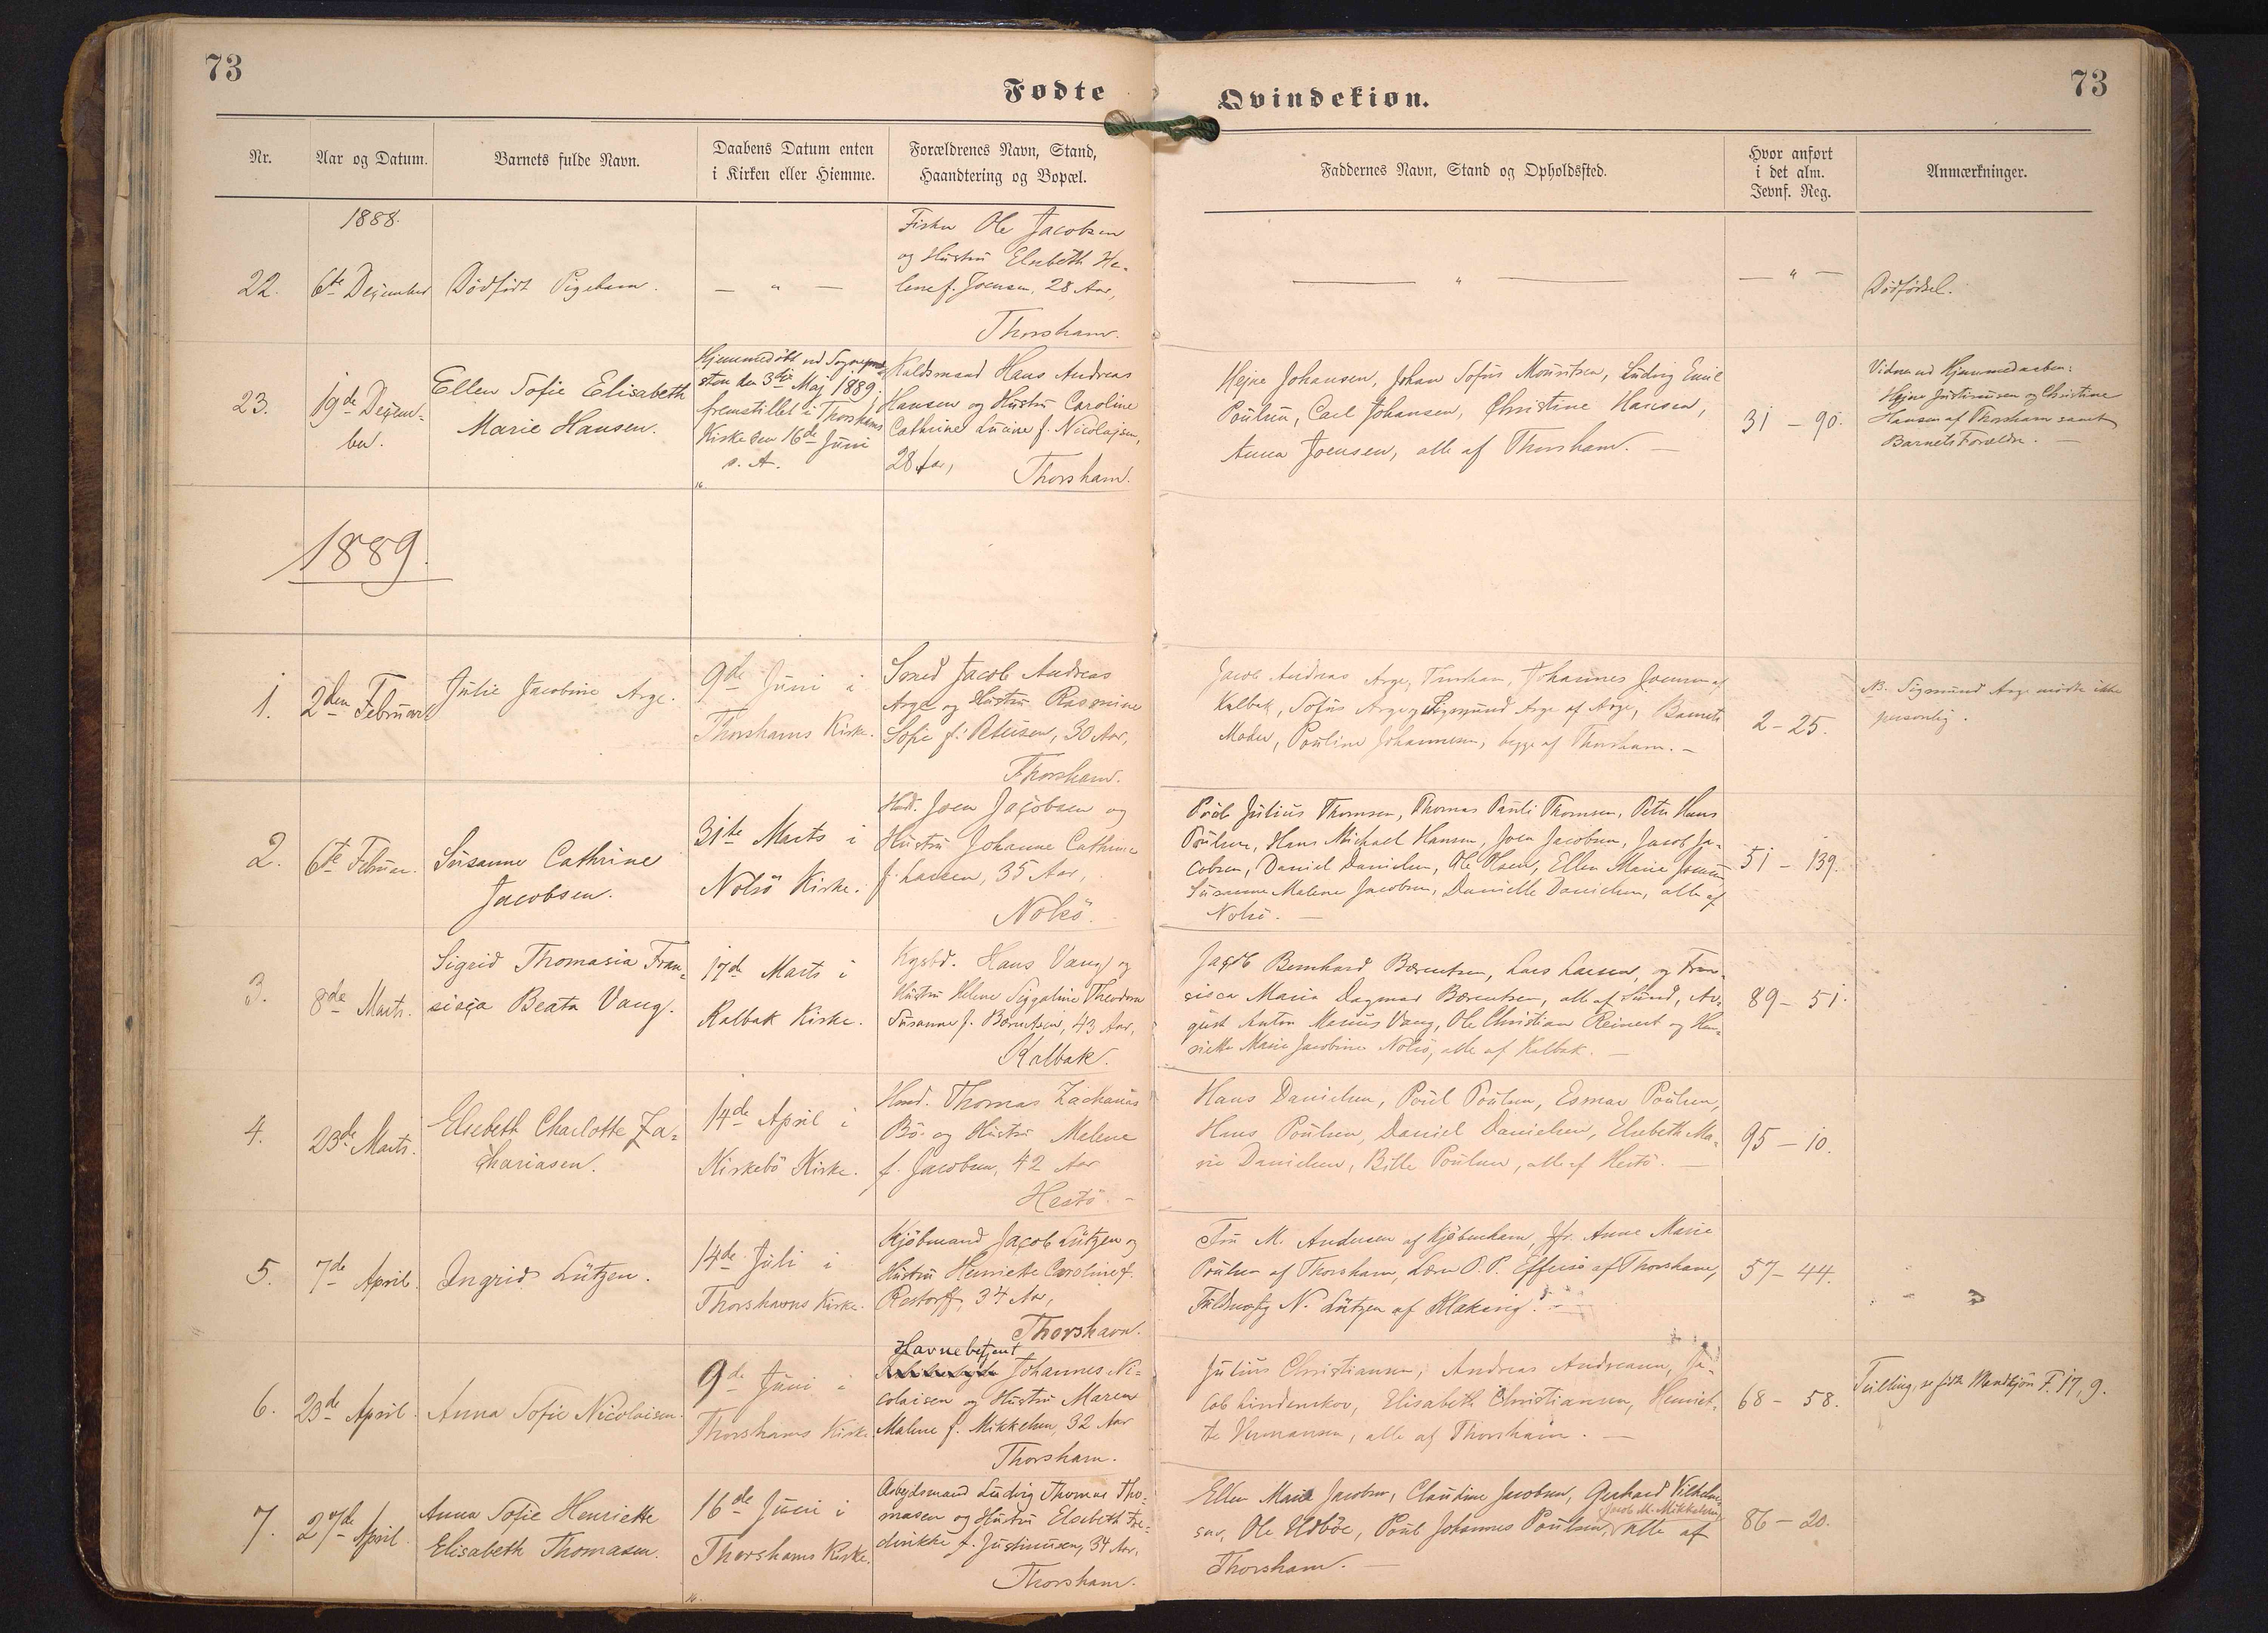 73
Fødte
Nr.
Aar og Datum.
Barnets fulde Navn.
Daabens Datum enten
i Kirken eller Hiemme.
Forældrenes Navn, Stand,
Haandtering og Bopæl.
1888.
22.
6te December
Dødfødt Pigebarn.
— " —
Fisker Ole Jacobsen
og Hustru Elsebeth He-
lene f. Joensen, 28 Aar,
Thorshavn.
23.
19de Decem-
ber.
Ellen Sofie Elisabeth
Marie Hansen.
Hjemmedøbt ved Sognepræ-
sten den 3die Maj 1889,
fremstillet i Thorshavns
Kirke den 16de Juni
s. A.
Hans Andreas
Hansen og Hustru Caroline
Cathrine Lucine f. Nicolajsen,
28 Aar,
Thorshavn.
1889.
1.
2den Februar
Julie Jacobine Arge.
9de Juni i
Thorshavns Kirke.
Smed Jacob Andreas
Arge og Hustru Rasmine
Sofie f. Petersen, 30 Aar,
Thorshavn.
2.
6te Februar.
Susanne Cathrine
Jacobsen.
31te Marts i
Nolsö Kirke.
Hmd. Joen Jacobsen og
Hustru Johanne Cathrine
f. Larsen, 35 Aar,
Nolsö.
3.
8de Marts.
Sigrid Thomasia Fran-
cisca Beata Vang.
17de Marts i
Kalbak Kirke.
Kgsbd. Hans Vang og
Hustru Helene Siggaline Theodora
Susanne f. Bærentsen, 43 Aar,
Kalbak.
4.
23de Marts.
Elsebeth Charlotte Za-
chariasen.
14de April i
Kirkebö Kirke.
Hmd. Thomas Zacharias
Bö. og Hustru Malene
f. Jacobsen, 42 Aar
Hestö. -
5.
7de April.
Ingrid Lützen.
14de Juli i
Thorshavns Kirke.
Kjöbmand Jacob Lützen og
Hustru Henriette Caroline f.
Restorff, 34 Aar,
Thorshavn.
6.
23de April.
Anna Sofie Nicolaisen.
9de Juni i
Thorshavns Kirke.
Havnebetjent
Johannes Ni-
colaisen og Hustru Maren
Malene f. Mikkelsen, 32 Aar
Thorshavn.
7.
27de April.
Anna Sofie Henriette
Elisabeth Thomasen.
16de Juni i
Thorshavns Kirke.
Arbejdsmand Ludvig Thomas Tho-
masen og Hustru Elsebeth Fre-
derikke f. Justinussen, 34 Aar,
Thorshavn.
73
Qvindekiøn.
Faddernes Navn, Stand og Opholdssted.
Hvor anført
i det alm.
Jevnf. Reg.
Anmærkninger.
— " —
— " —
Dødfødsel.
Hejne Johansen, Johan Sofus Mouritsen, Ludvig Emil
Poulsen, Carl Johansen, Christine Hansen,
Anna Joensen, alle af Thorshavn. —
31 - 90.
Vidner ved Hjemmedaaben:
Hejne Justinussen og Christine
Hansen af Thorshavn samt
Barnets Forældre. —
Jacob Andreas Arge, Thorshavn, Johannes Joensen af
Kalbak, Sofus Arge og Sigmund Arge af Arge, Barnets
Moder, Pouline Johannesen, begge af Thorshavn. -
2 - 25.
NB. Sigmund Arge mödte ikke
personlig.
Poul Julius Thomsen, Thomas Pauli Thomsen, Peter Hans
Poulsen, Hans Michael Hansen, Joen Jacobsen, Jacob Ja-
cobsen, Daniel Danielsen, Ole Olsen, Ellen Marie Joensen,
Susanne Malene Jacobsen, Danielle Danielsen, alle af
Nolsö. —
51 - 139.
Jacob Bernhard Bærentsen, Lars Larsen, og Fran-
cisca Maria Dagmar Bærentsen, alle af Sund, Au-
gust Anton Marius Vang, Ole Christian Reinert og Hen-
riette Marie Jacobine Nolsö, alle af Kalbak. —
89 - 51.
Hans Danielsen, Poul Poulsen, Esmar Poulsen,
Hans Poulsen, Daniel Danielsen, Elsebeth Ma-
rie Danielsen, Bille Poulsen, alle af Hestö. —
95 - 10.
Fru M. Andersen af Kjöbenhavn, Jfr. Anne Marie
Poulsen af Thorshavn, Lærer P. P. Effersö af Thorshavn,
Fuldmægtig N. Lützen af Klaksvig.
57 - 44.
Julius Christiansen, Andreas Andreasen, Ja-
cob Lindenskov, Elisabeth Christiansen, Henriet-
te Hermansen, alle af Thorshavn. —
68 - 58.
Tvilling, se födte Mandkjön F. 17, 9.
Ellen Marie Jacobsen, Claudine Jacobsen, Gerhard Vilhelm-
Jacob M. Mikkelsen
sen, Ole Udböe, Poul Johannes Poulsen, alle af
Thorshavn. —
86 - 20.